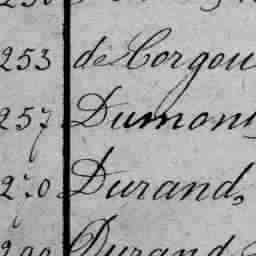 253 de Corgou
257 Dumons
270 Durand,
290 Durand